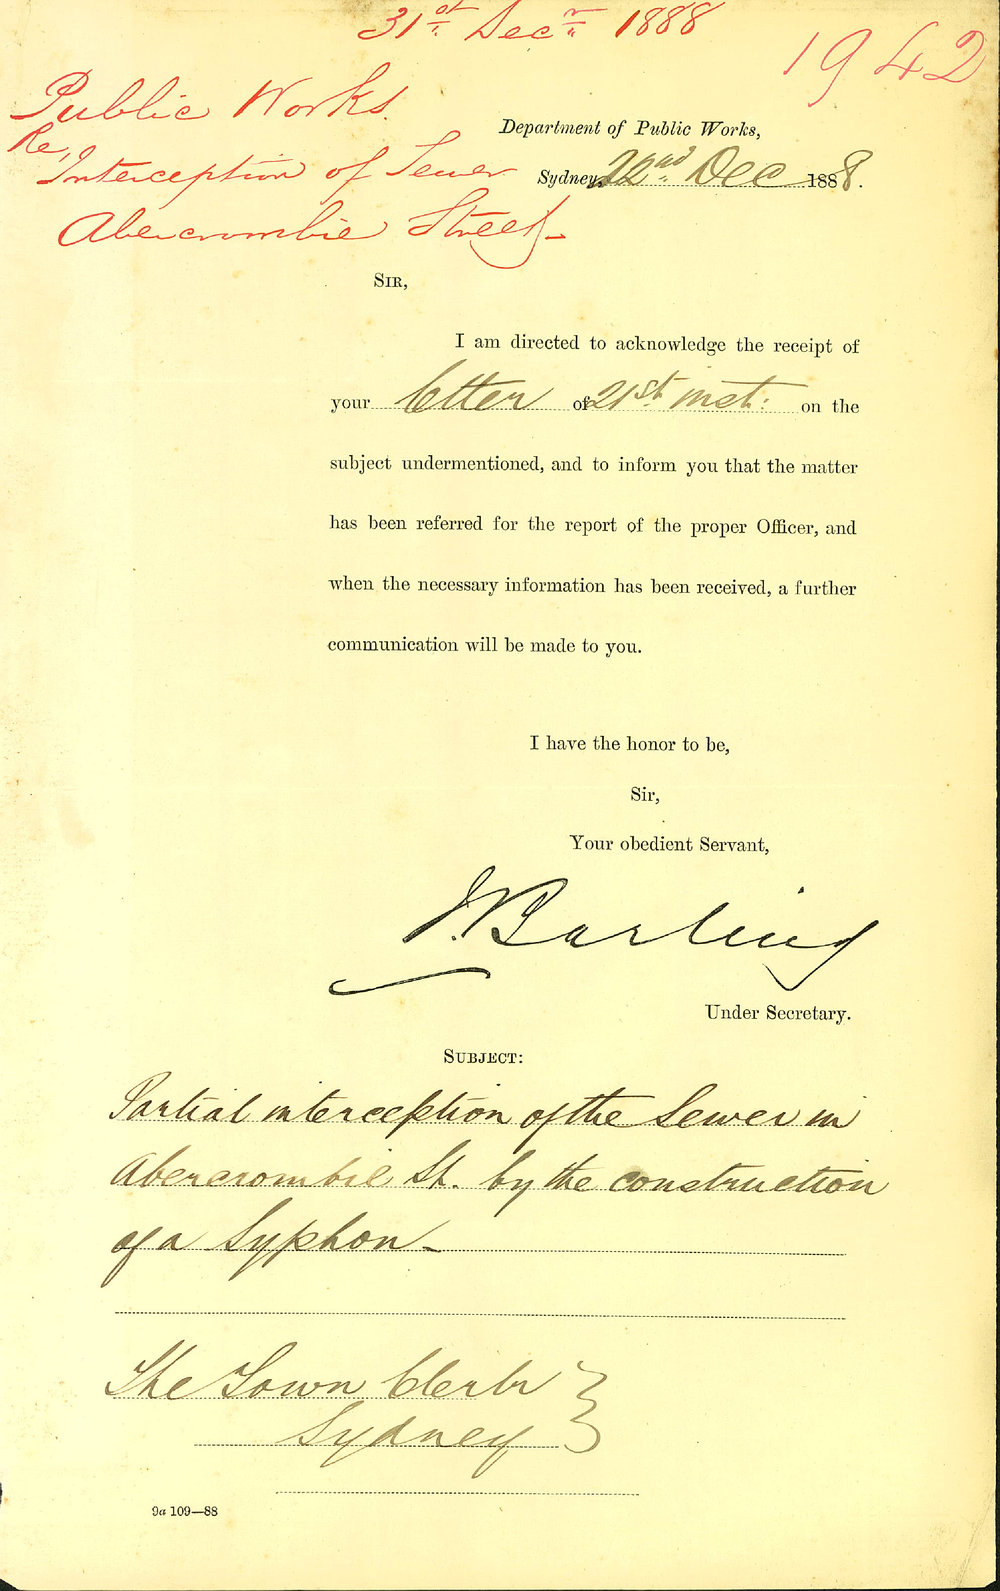 31st Decr 1888
1942
Public Works.
Re, Interception of Sewer
Abercrombie Street
Department of Public Works,
Sydney, 22nd Dec 1888.
SIR,
I am directed to acknowledge the receipt of
your letter of 21st inst: on the
subject undermentioned, and to inform you that the matter
has been referred for the report of the proper Officer, and
when the necessary information has been received, a further
communication will be made to you.
I have the honor to be,
Sir,
Your obedient Servant,
J. Barling
Under Secretary.
SUBJECT:
Partial interception of the Sewer in
Abercrombie St. by the construction
of a Syphon_
The Town Clerk
Sydney
9a 109—88